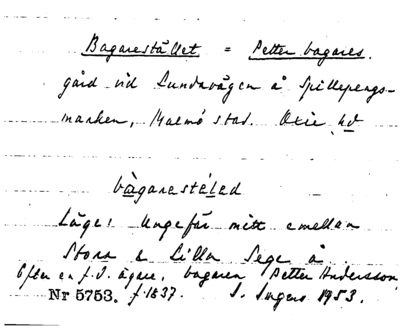 Bagarestället = Petter bagares
gård vid Lundavägen å Spillepengs-
marken, Malmö stad. Oxie hd
bàgarestéled
Läge: Ungefär mitt emellan
Stora & Lilla Sege å.
Efter en f.d. ägare, bagaren Petter Andersson,
Nr 5753. f. 1837. I. Ingers 1953.